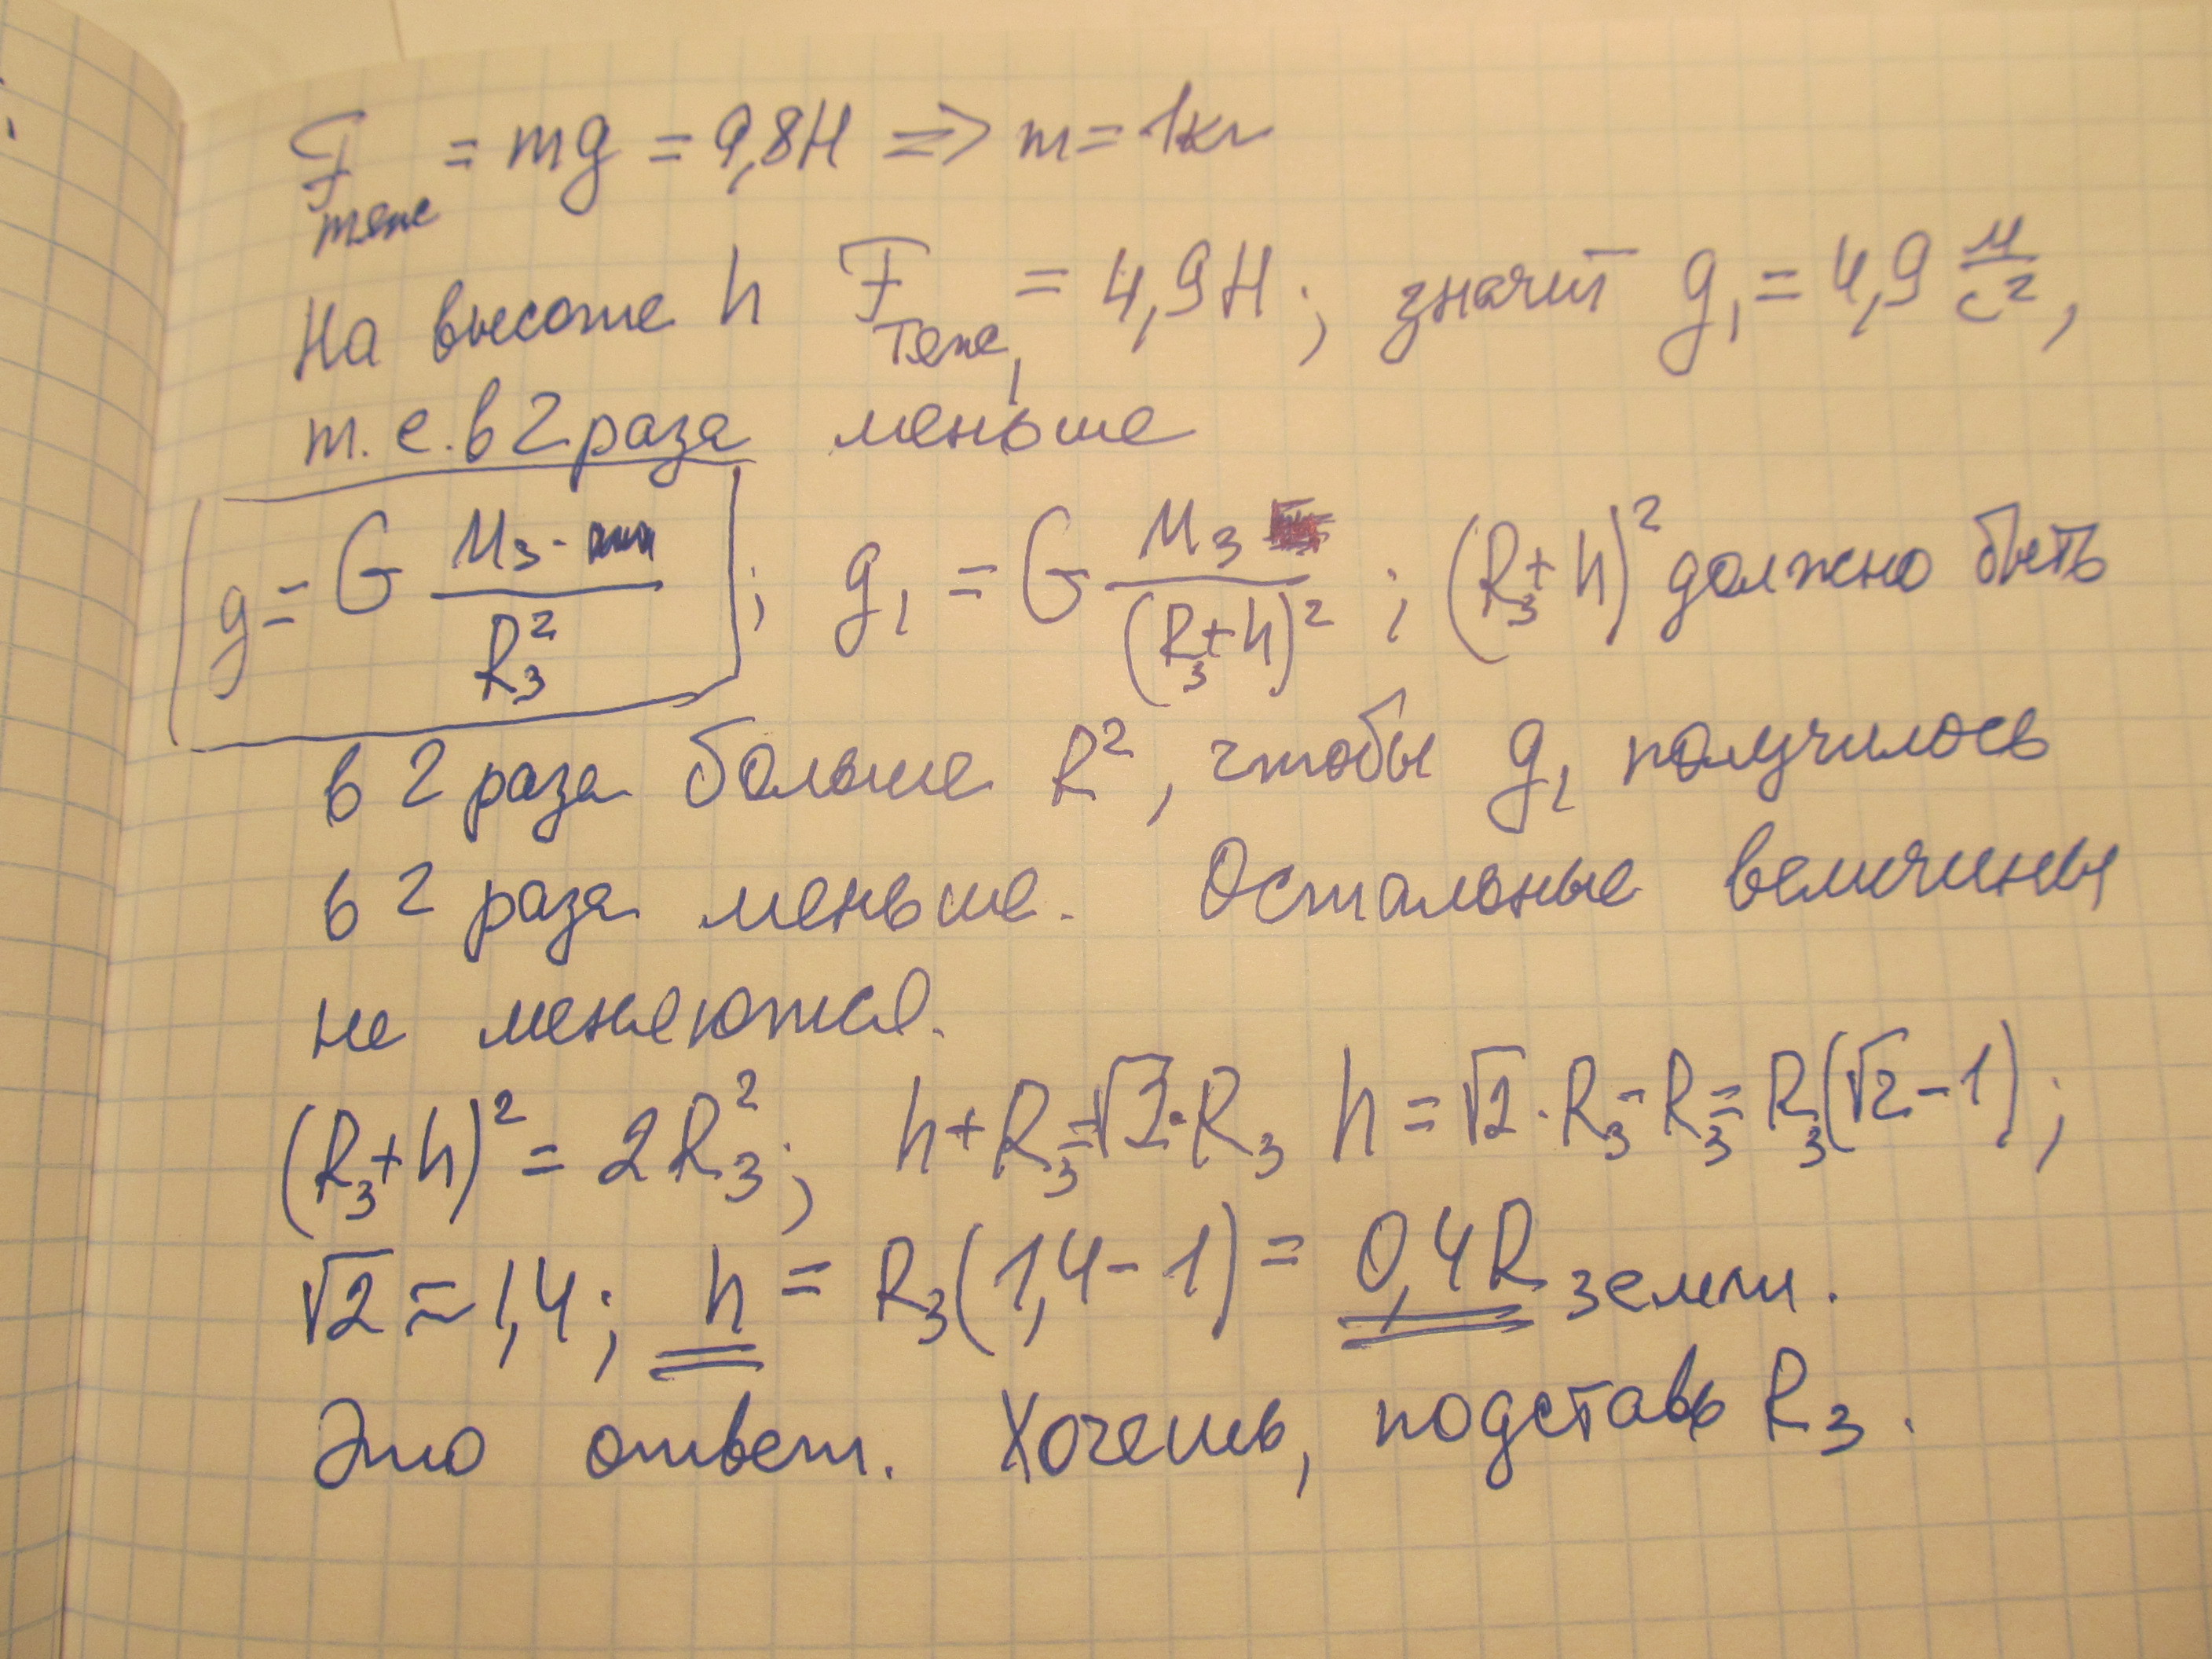 F тяж = mg = 9,8Н => m = 1кг
На высоте h F тяж₁ = 4,9Н; значит g₁ = 4,9 м/с²,
т.е. в 2 раза меньше
g = G Mз · / Rз²; g₁ = G Mз / (Rз+h)²; (Rз+h)² должно быть
в 2 раза больше R², чтобы g₁ получилось
в 2 раза меньше. Остальные величины
не меняются.
(Rз+h)² = 2Rз²; h+Rз=√2·Rз h = √2·Rз-Rз=Rз(√2-1);
√2 ≈ 1,4; h = Rз(1,4-1) = 0,4R земли.
Это ответ. Хочешь, подставь Rз.